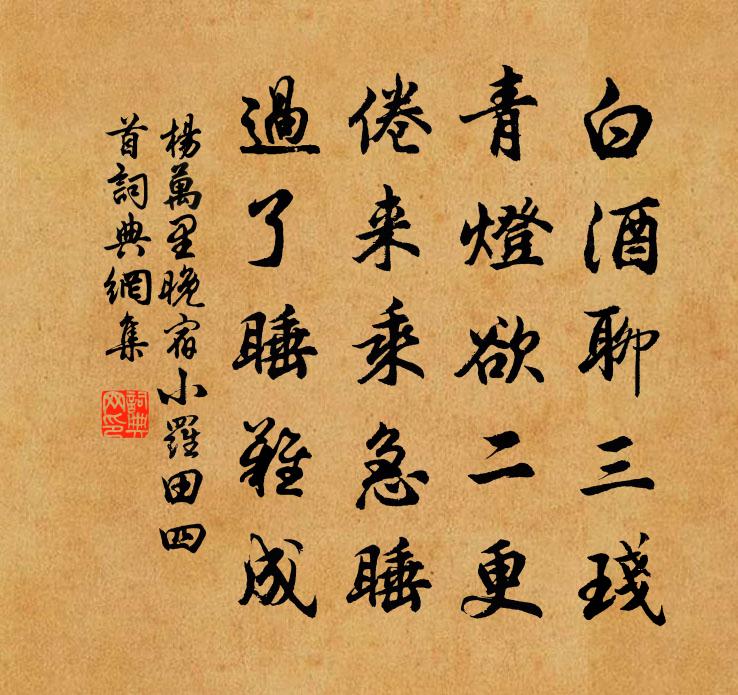 白酒聊三琖
青燈欲二更
倦来乘急睡
過了睡難成
楊萬里晚宿小羅田四
首詞典網集
詞典
网印